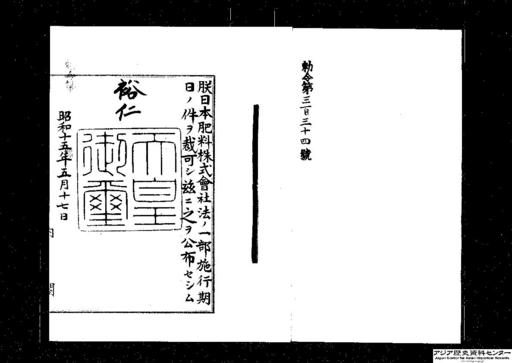 勅令第三百三十四號
朕日本肥料株式會社法ノ一部施行期
日ノ件ヲ裁可シ玆ニ之ヲ公布セシム
裕仁
天皇
御璽
昭和十五年五月十七日
内 閣
アジア歴史資料センター
Japan Center for Asian Historical Records